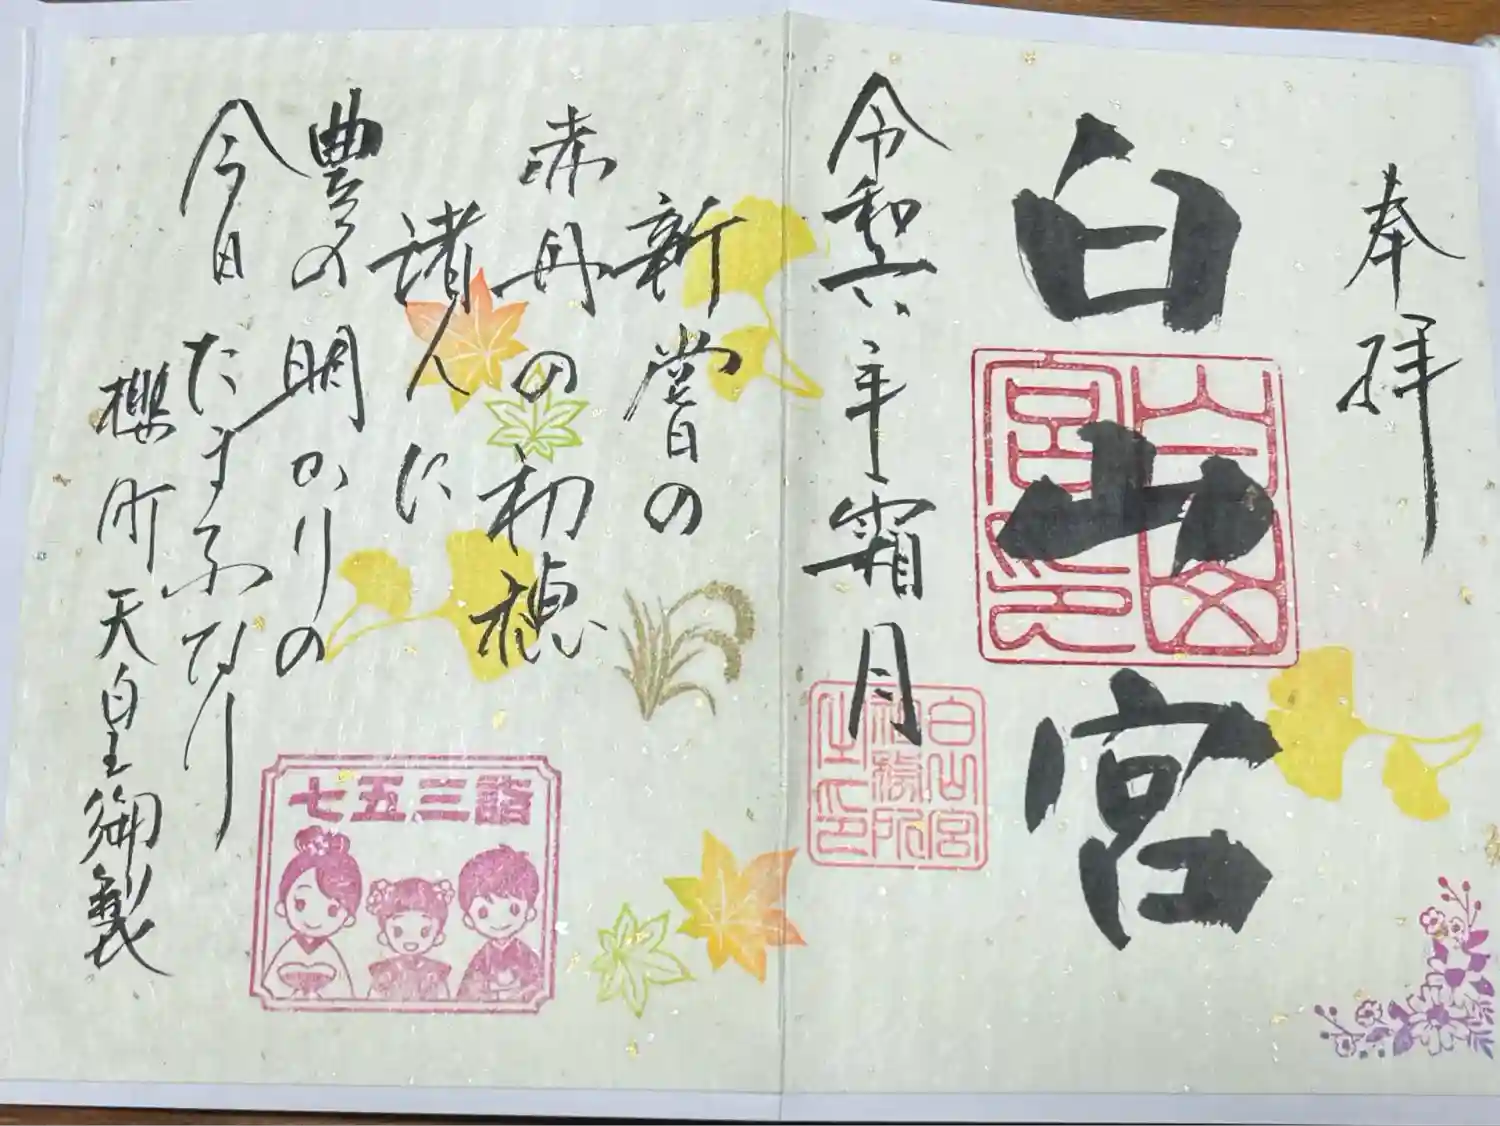 奉拝
白山宮
令和六年霜月
白山宮
社務所
之印
新嘗の
赤丹の初穂
諸人に
豊の明かりの
今日たまふなり
櫻町天皇御製
七五三詣